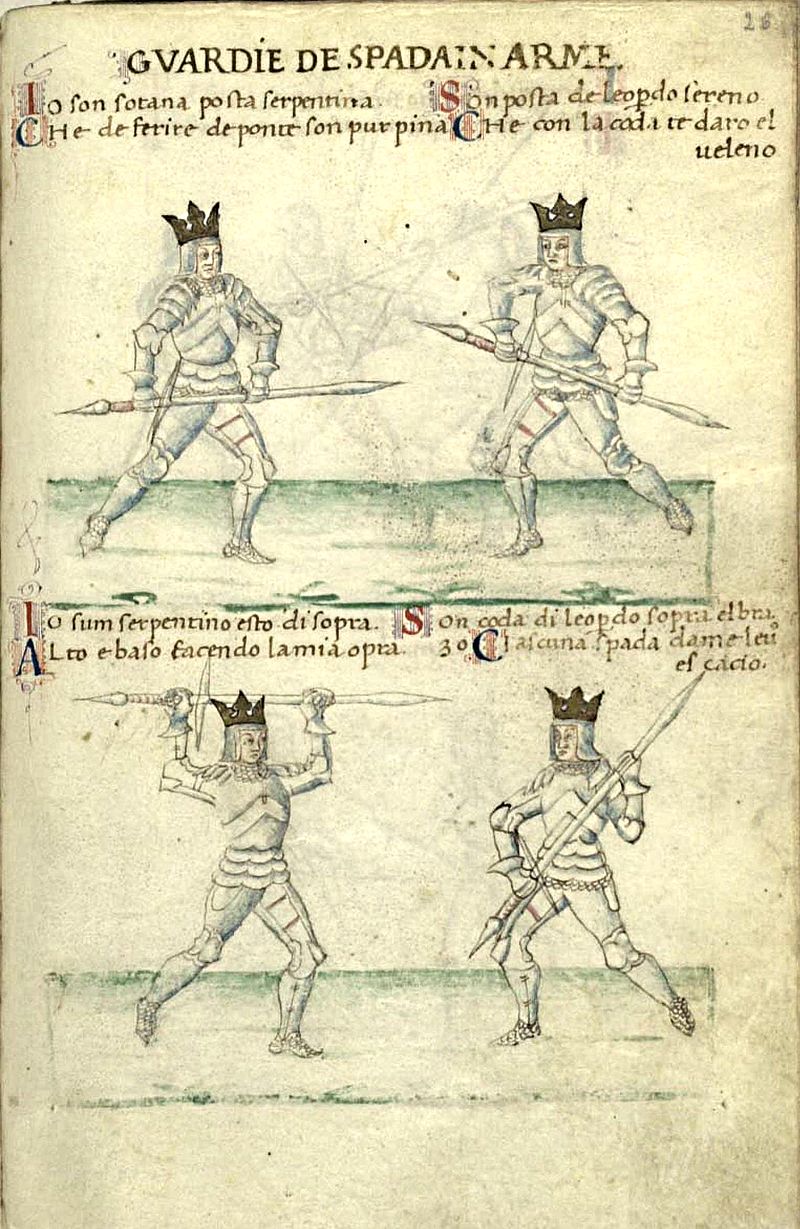 26
GVARDIE DE SPADA IN ARME.
IO son sotana posta serpentina.
CHe de ferire de ponte son pur pina
SOn posta de leoꝑdo sereno
CHe con la coda te daro el
ueleno
IO sum serpentino esto di sopra.
ALto e baso facendo la mia opra.
SOn coda di leoꝑdo sopra el bra
зo CIascuna spada dame leu
es cacio.